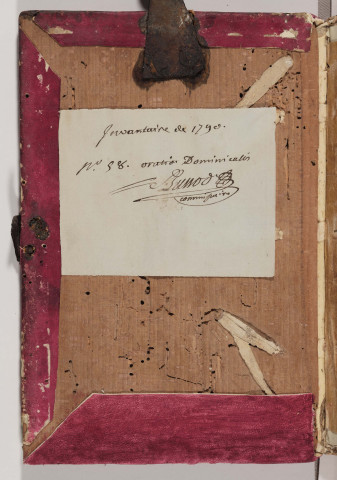 Invantaire de 1790.
N.° 58. oratio Dominicalis
commissaire